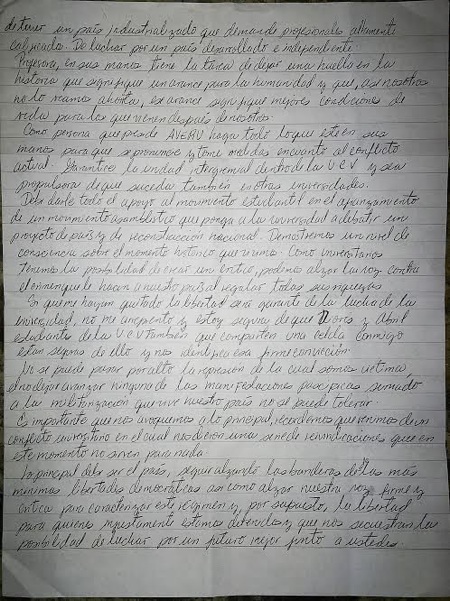 de tener un país industrializado que demande profesionales altamente
calificado. De luchar por un país desarrollado e independiente.
Profesora, en sus manos tiene la tarea de dejar una huella en la
historia que signifique un avance para la humanidad y que, así nosotros
no lo veamos ahorita, ese avance signifique mejores condiciones de
vida para los que vienen después de nosotros.
Como persona que preside AVERU haga todo lo que esté en sus
manos para que se pronuncie y tome medidas encuanto al conflicto
actual. Garantice la unidad intergremial dentro de la UCV y sea
propulsora de que suceda también en otras universidades.
Debe darle todo el apoyo al movimiento estudiantil en el
de un movimiento asambleístico que ponga a la universidad a debatir un
proyecto de país y de reconstrucción nacional. Demostremos un nivel de
consciencia sobre el momento histórico que vivimos. Como universitarios
tenemos la posibilidad de crear un critico, podemos alzar la voz contra
el crimen que le hacen a nuestro país al regalar todas sus riquezas
Si que me hayan quitado la libertad será garante de la lucha de la
universidad, no me arrepiento y estoy segura de que y Abril
estudiante de la UCV también que comparten una celda conmigo
están seguros de ello y nos identifica esa firme convicción.
No se puede pasar por alto la represión de la cual somos víctima,
el no dejar avanzar ninguna de las manifestaciones pacificas sumado
a la militarización que vive nuestro país no se puede tolerar.
Es importante que nos avoquemos a lo principal, recordemos que venimos de un
conflicto universitario en el cual nos dieron una serie de reivindicaciones que en
este momento no sirven para nada.
Lo principal debe ser el país, seguir alzando las banderas de las más
mínimas libertades democráticas así como alzar nuestra voz firme y
critica para caracterizar este régimen y, por supuesto, la libertad
para quienes injustamente estamos detenidas y que nos secuestran la
posibilidad de luchar por un futuro mejor junto a ustedes.